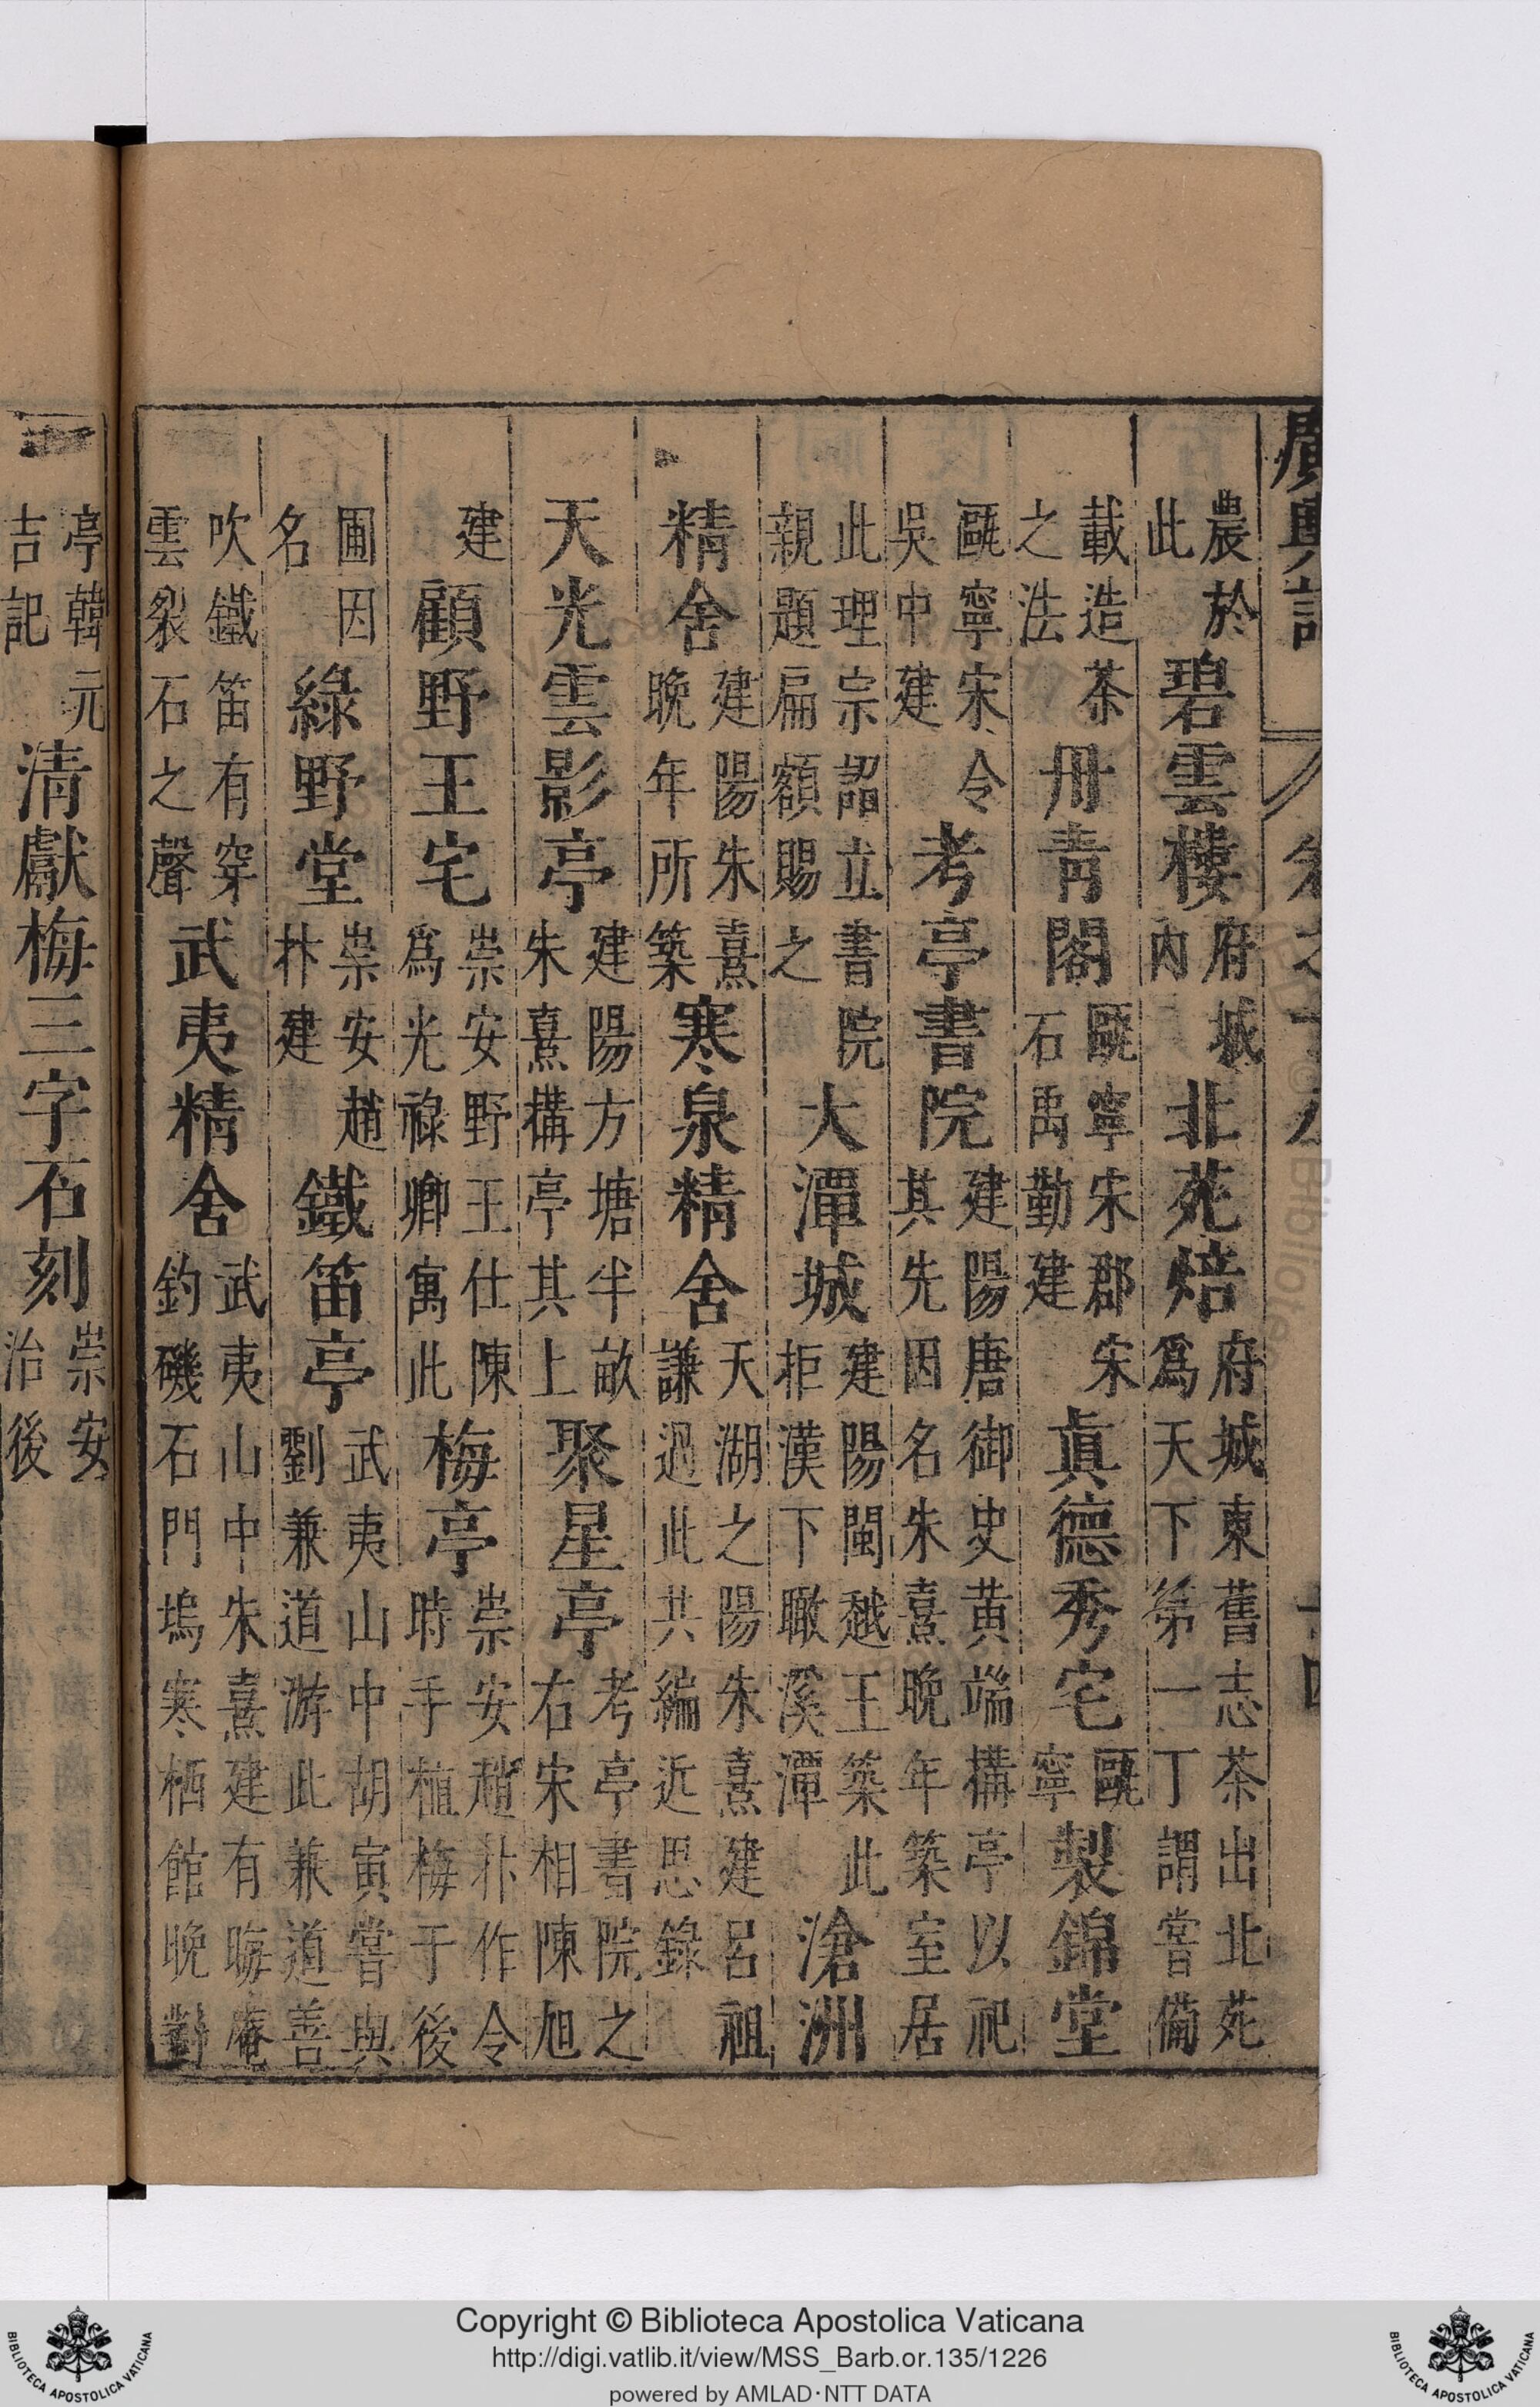 廣輿記 卷之
農於此 碧雲樓 府城內 北苑焙 府城東舊志茶出北苑爲天下第一丁謂嘗備
載造茶之法 丹青閣 甌寧宋郡宋石禹勤建 眞德秀宅 甌寧 製錦堂
甌寧宋令吳中建 考亭書院 建陽唐御史黄端構亭以祀其先因名朱熹晚年築室居
此理宗詔立書院親題扁額賜之 大潭城 建陽閩越王築此柜漢下瞰溪潭 滄洲
精舍 建陽朱熹晚年所築 寒泉精舍 天湖之陽朱熹建呂祖謙過此共編近思錄
天光雲影亭 建陽方塘半畝朱熹構亭其上 聚星亭 考亭書院之右宋相陳旭
建 顧野王宅 崇安野王仕陳爲光祿卿寓此 梅亭 崇安趙抃作令時手植梅于後
圃因名 綠野堂 崇安趙抃建 鐵笛亭 武夷山中胡寅嘗與劉兼道游此兼道善
吹鐵笛有穿雲裂石之聲 武夷精舍 武夷山中朱熹建有晦庵釣磯石門塢寒栖館晚對
亭韓元吉記 清獻梅三字石刻 崇安治後
Copyright © Biblioteca Apostolica Vaticana
http://digi.vatlib.it/view/MSS_Barb.or.135/1226
powered by AMLAD·NTT DATA